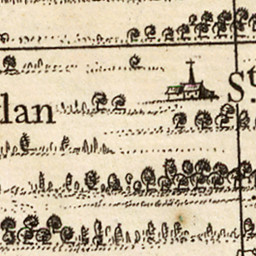 St
lan